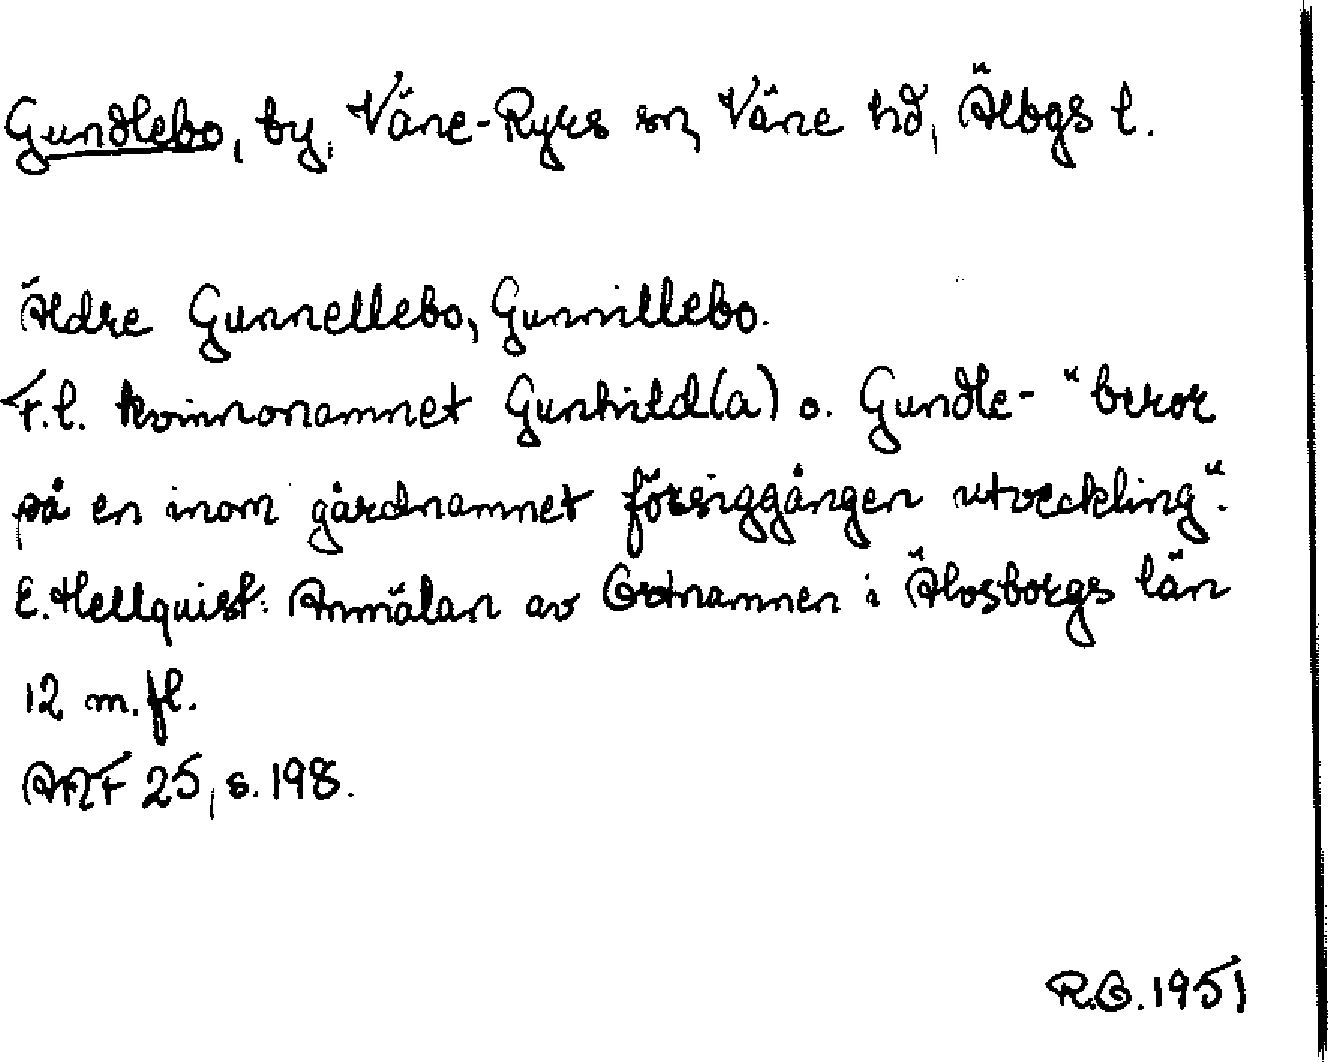 Gundlebo, by, Väne-Ryrs sn, Väne hd, Älvbgs l.
Äldre Gunnellebo, Gunnillebo.
F.l. kvinnonamnet Gunhild(a) o. Gundle- "beror
på en inom gårdnamnet försiggången utveckling".
E. Hellquist: Anmälan av Ortnamnen i Älvsborgs län
12 m.fl.
ANF 25, s. 198.
R.O. 1951